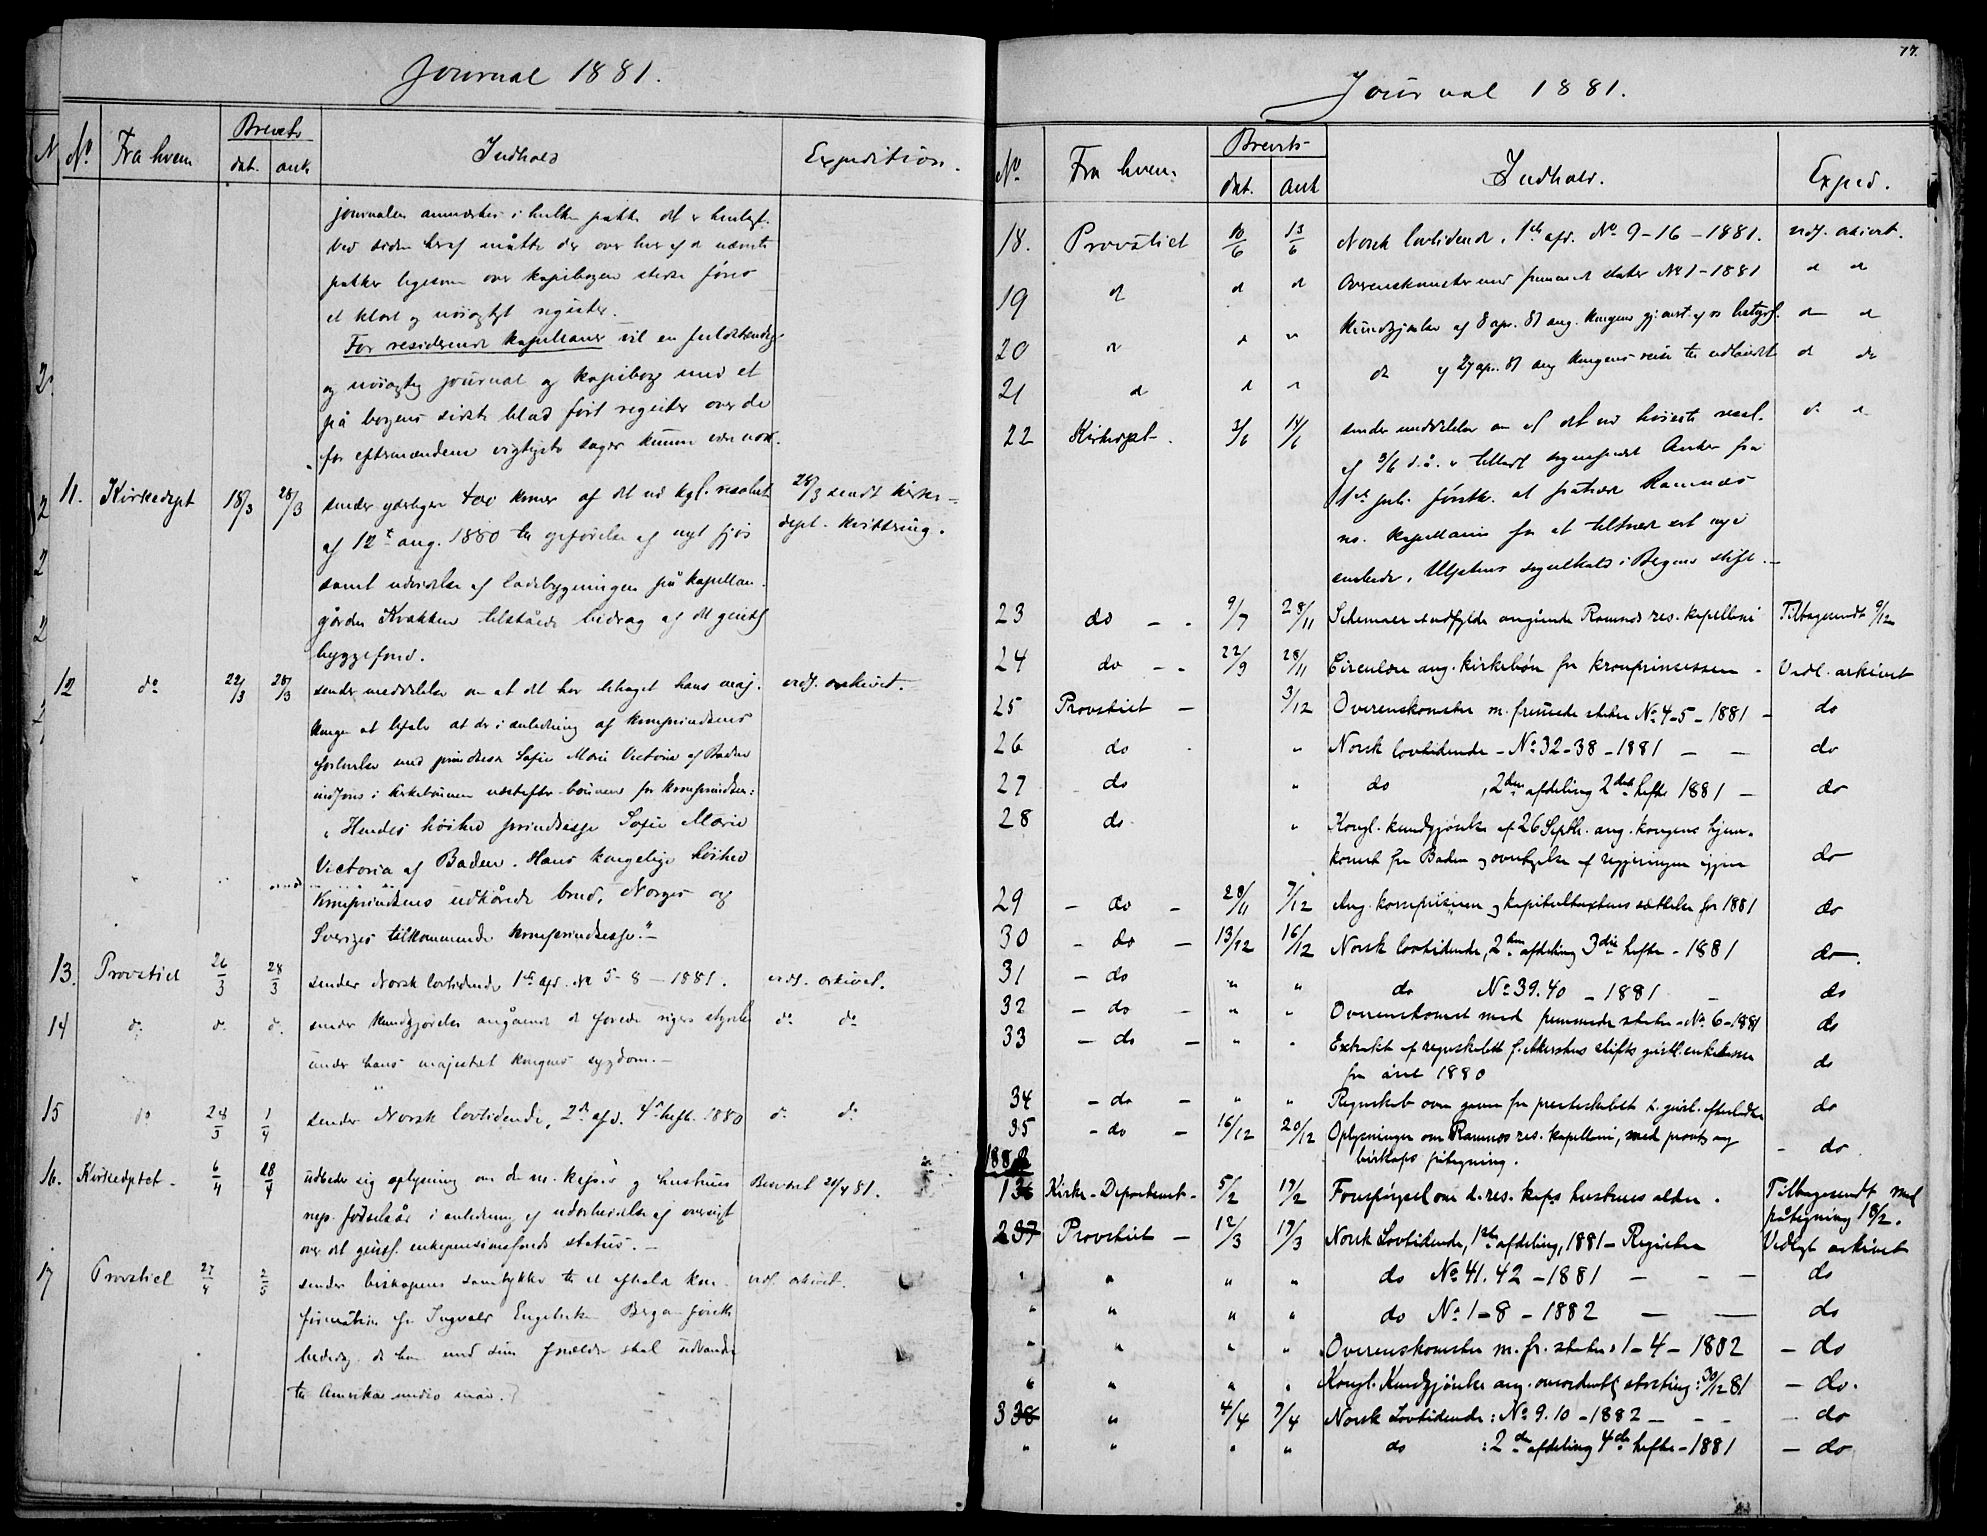 Journal 1881.
No. Fra hvem Brevets dat. ank. Indhold Expedition.
journalen anmærkes i hvilken pakke det er henlagt.
Ved siden heraf måtte der over hver af de nævnte
pakker ligesom over kopibogen sterk føres
et klart og nøiagtigt register.
For residerende kapellaner vil en fuldstændig
og nøiagtig journal og kopibog med et
på bogens sidste blad ført register over de
for eftermændene vigtigste sager kunne være nok.
11. Kirkedept 18/3 28/3 sender yderligere 400 kroner af det ved kgl. resolut 28/3 sendt kirke-
af 12te aug. 1880 til opførelse af nyt fjøs dept. kvittering.
samt udvidelse af ladebygningen på kapellan-
gården Kvakken tilståede bidrag af det geistl
byggefond.
12 do 22/3 28/3 sender meddelelse om at det har behaget hans maj. vedl. arkivet.
kongen at befale at der i anledning af kronprindsens
forlovelse med prindsesse Sofie Marie Victoria af Baden
indføres i kirkebønnen næstefter bønnen for kronprindsen:
"Hendes høihed prindsesse Sofie Marie
Victoria af Baden. Hans kongelige høihed
Kronprindsens udkårede brud, Norges og
Sveriges tilkommende kronprindsesse."
13. Provstiet 26/3 28/3 sender Norsk lovtidende 1ste afd. No 5-8 - 1881. vedl. arkivet.
14 do do do sender kundgjørelse angående de forende rigers styrelse do do
under hans majestæt kongens sygdom.
15 do 28/3 1/4 sender Norsk lovtidende, 2den afd. 4de hefte 1880 do do
16. Kirkedeptet 6/4 28/4 udbeder sig oplysning om den res. kap.s og hustrues Besvaret 28/4 81.
resp. fødselsår i anledning af udarbeidelse af oversigt
over det geistl. enkepensionsfonds status.
17 Provstiet 27/4 2/5 sender biskopens samtykke til at afholde kon- vedl. arkivet.
firmation for Ingvald Engebretsen Berga førstk.
bededag, da han med sine forældre skal udvandre
til Amerika medio mai.
77.
Journal 1881.
No. Fra hvem. Brevets dat. ank Indhold. Exped.
18. Provstiet 10/6 13/6 Norsk lovtidende, 1ste afd. No 9-16 - 1881. vedl. arkivet.
19 do do do Overenskomster med fremmede stater No 1 - 1881 do do
20 " " " Kundgjørelse af 8 apr. 81 ang. kongens gjenovert. af do do
21 do " " do af 27 apr. 81 ang kongens reise til udlandet do do
22 Kirkedept. 3/6 14/6 sender meddelelse om at det ved høieste resol. do do
af 3/6 d.å. er tilladt sogneprest Anker fra
1ste juli førstk. at fratræde Ramnæs
res. kapellani for at tiltræde sit nye
embede, sognekald i Bergens stift.
23 do - - 9/7 28/11 Schemaer at udfylde angående Ramnes res. kapellani Tilbagesendt 9/12
24 do - - 22/9 28/11 Circulære ang. kirkebøn for kronprinsessen - Vedl. arkivet
25 Provstiet - 3/12 Overenskomster m. fremmede stater No 4-5 - 1881 - do
26 do " Norsk lovtidende - No 32-38 - 1881 - - do
27 do " do , 2den afdeling 2det hefte 1881 - do
28 do " Kongl. kundgjørelse af 26 Septb. ang. kongens hjem-
komst fra Baden og overtagelse af regjeringen igjen do
29 - do - 28/11 7/12 Ang. kornprisen og kapitelstaxtens sættelse for 1881 do
30 - do - 13/12 16/12 Norsk lovtidende, 2den afdeling 3die hefte - 1881 do.
31 - do " " do No 39.40 - 1881 - do
32 - do - " " Overenskomst med fremmede stater - No 6 - 1881 do
33 - do - " " Extrakt af regnskabet f. Akershus stifts geistl. enkekasse
for året 1880 do
34 - do - " " Regnskab over gaver fra presteskabet t. geistl. efterladte do
35 - do - 16/12 20/12 Oplysninger om Ramnes res. kapellani, med provst og
biskops påtegning. - do
1882
1 36 Kirke-Departementet - 5/2 17/2 Forespørgsel om d. res. kaps hustrues alder. Tilbagesendt med
påtegning 18/2.
2 37 Provstiet - 12/3 17/3 Norsk Lovtidende, 1ste afdeling, 1881 - Register Vedlagt arkivet
" " " " do No 41.42 - 1881 - - - do
" " " " do No 1-8 - 1882 - - do
" " " " Overenskomster m. fr. stater 1-4 - 1882 - do
" " " " Kongl. Kundgjørelse ang. overordentl. storting: 30/12 81 - do.
3 38 " 4/4 7/4 Norsk Lovtidende: No 9.10 - 1882 - - - - do
" " " " do : 2den afdeling 4de hefte - 1881 - do